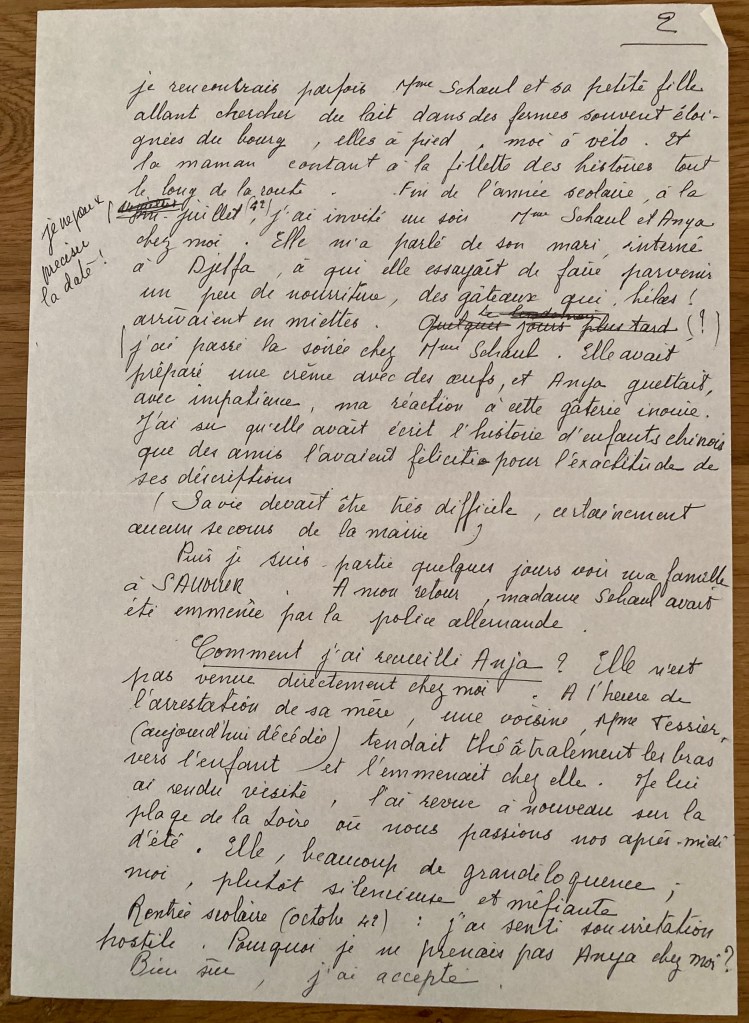 2
je rencontrais parfois Mme Schaul et sa petite fille
allant chercher du lait dans des fermes souvent éloi-
gnées du bourg, elles à pied, moi à vélo. Et
la maman contant à la fillette des histoires tout
le long de la route. Fin de l'année scolaire, à la
juillet (42), j'ai invité un soir Mme Schaul et Anya
je ne peux
préciser
la date !
chez moi. Elle m'a parlé de son mari, interné
à Djelfa, à qui elle essayait de faire parvenir
un peu de nourriture, des gâteaux qui, hélas !
arrivaient en miettes. Quelques jours plus tard (?)
le lendemain
j'ai passé la soirée chez Mme Schaul. Elle avait
préparé une crème avec des œufs, et Anya guettait,
avec impatience, ma réaction à cette gâterie inouïe.
J'ai su qu'elle avait écrit l'histoire d'enfants chinois
que des amis l'avaient félicitée pour l'exactitude de
ses déscriptions
(Sa vie devait être très difficile, certainement
aucun secours de la mairie)
Puis je suis partie quelques jours voir ma famille
à SAUMUR. A mon retour, madame Schaul avait
été emmenée par la police allemande.
Comment j'ai recueilli Anja ? Elle n'est
pas venue directement chez moi. A l'heure de
l'arrestation de sa mère, une voisine, Mme Tessier,
(aujourd'hui décédée) tendait théâtralement les bras
vers l'enfant et l'emmenait chez elle. Je lui
ai rendu visite, l'ai revue à nouveau sur la
plage de la Loire où nous passions nos après-midi
d'été. Elle, beaucoup de grandiloquence ;
moi, plutôt silencieuse et méfiante
Rentrée scolaire (octobre 42) : j'ai senti son irritation
hostile. Pourquoi je ne prenais pas Anya chez moi ?
Bien sûr, j'ai accepté.